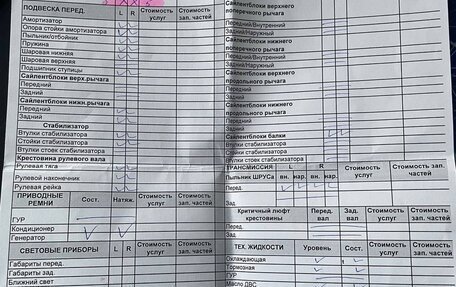 ПОДВЕСКА ПЕРЕД. L R Стоимость услуг Стоимость зап. частей
Амортизатор
Опора стойки амортизатора
Пыльник/отбойник
Пружина
Шаровая нижняя
Шаровая верхняя
Подшипник ступицы
Сайлентблоки верх.рычага
Передний
Задний
Сайлентблоки нижн.рычага
Передний
Задний
Стабилизатор
Втулки стабилизатора
Стойки стабилизатора
Втулки стоек стабилизатора
Крестовина рулевого вала
Рулевая тяга
Рулевой наконечник
Рулевая рейка
ПРИВОДНЫЕ РЕМНИ Сост. Натяж. Стоимость услуг Стоимость зап. частей
ГУР
Кондиционер
Генератор
СВЕТОВЫЕ ПРИБОРЫ L R Стоимость услуг Стоимость зап. частей
Габариты перед.
Габариты зад.
Ближний свет
Сайлентблоки верхнего
поперечного рычага
Передний/Внутренний
Задний/Наружный
Сайлентблоки нижнего
поперечного рычага
Передний/Внутренний
Задний/Наружный
Сайлентблоки верхнего
продольного рычага
Передний
Задний
Сайлентблоки нижнего
продольного рычага
Передний
Задний
Сайлентблоки балки
Втулки стабилизатора
Стойки стабилизатора
Втулки стоек стабилизатора
ТРАНСМИССИЯ L R Стоимость услуг Стоимость зап. частей
Пыльник ШРУСа вн. нар. вн. нар.
Перед.
Зад
Критичный люфт крестовины Перед. вал Зад. вал Стоимость услуг Стоимость зап. частей
Перед.
Зад.
ТЕХ. ЖИДКОСТИ Уровень Сост. Стоимость услуг Стоимость зап. частей
Охлаждающая
Тормозная
ГУР
Масло ДВС